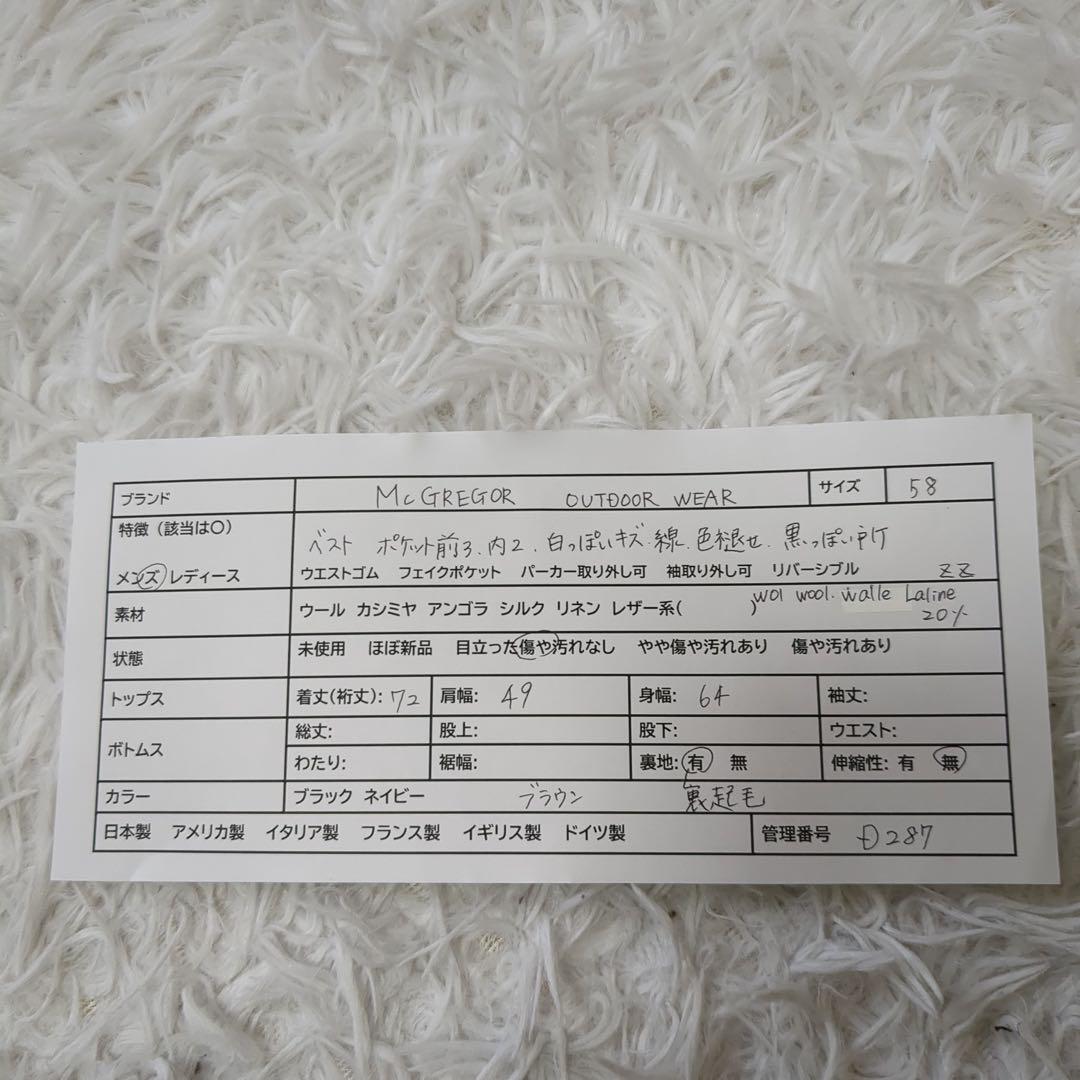 ブランド McGREGOR OUTDOOR WEAR サイズ 58
特徴（該当は〇） ベスト ポケット前3、内2、白っぽいキズ、線、色褪せ、黒っぽい所
メンズ レディース ウエストゴム フェイクポケット パーカー取り外し可 袖取り外し可 リバーシブル
素材 ウール カシミヤ アンゴラ シルク リネン レザー系( ) wol wool. walle Laline
20%
状態 未使用 ほぼ新品 目立った傷や汚れなし やや傷や汚れあり 傷や汚れあり
トップス 着丈(裄丈): 72 肩幅: 49 身幅: 64 袖丈:
ボトムス 総丈: 股上: 股下: ウエスト:
わたり: 裾幅: 裏地: 有 無 伸縮性: 有 無
カラー ブラック ネイビー ブラウン 裏起毛
日本製 アメリカ製 イタリア製 フランス製 イギリス製 ドイツ製 管理番号 D287